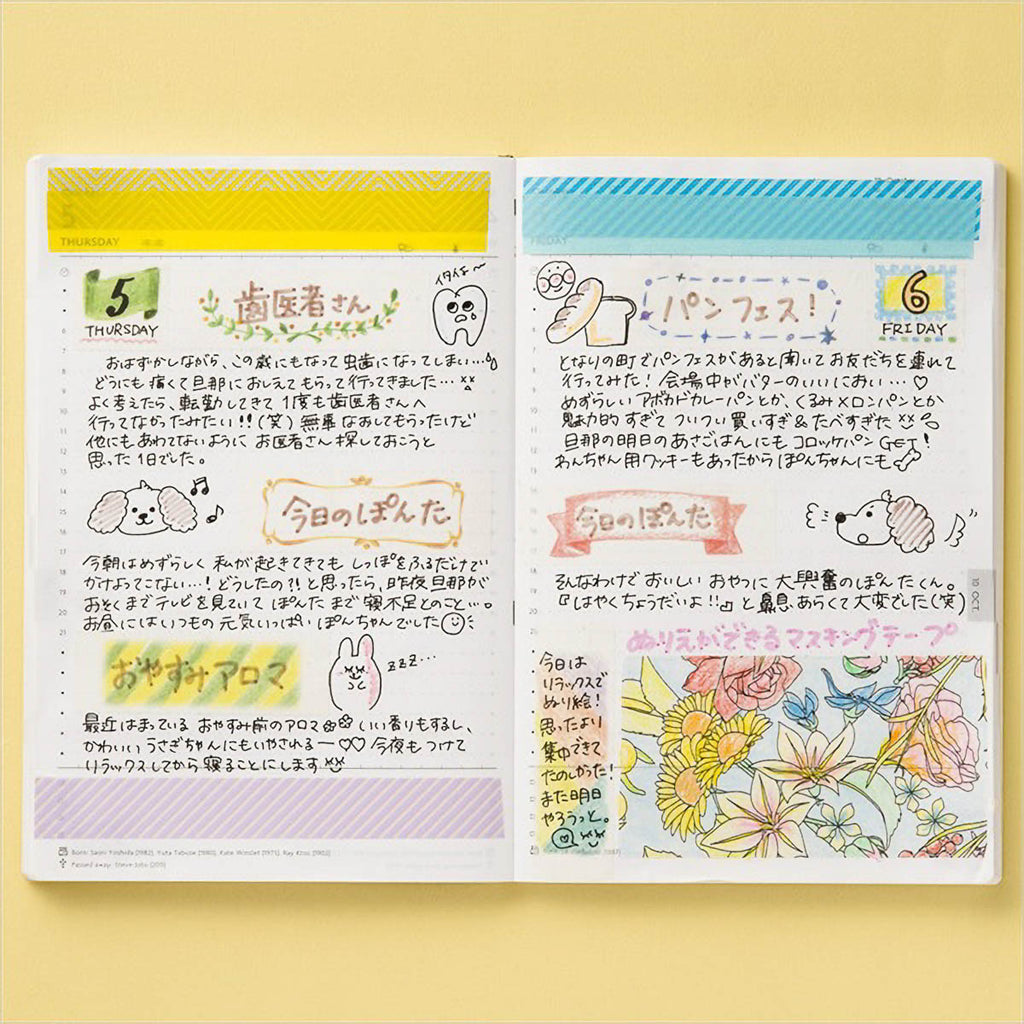 THURSDAY
5
THURSDAY
歯医者さん
イタイよ～
おはずかしながら、この歳にもなって虫歯になってしまい…
どうにも痛くて旦那におしえてもらって行ってきました…
よく考えたら、転勤してきて1度も歯医者さんへ
行ってなかったみたい!!(笑) 無事なおしてもらったけど
他にもあわてないように お医者さん探しておこうと
思った1日でした。
今日のぽんた
今朝はめずらしく 私が起きてきても しっぽをふるだけで
かけよってこない…! どうしたの?! と思ったら、昨夜旦那が
おそくまでテレビを見ていて ぽんたまで 寝不足とのこと…。
お昼にはいつもの 元気いっぱい ぽんちゃんでした
おやすみアロマ
zzz…
最近はまっている おやすみ前のアロマ いい香りもするし、
かわいい うさぎちゃんにもいやされるー♡♡ 今夜もつけて
リラックスしてから寝ることにします
Passed away: Steve Jobs [2011]
FRIDAY
パンフェス!
6
FRIDAY
となりの町でパンフェスがあると聞いてお友だちを連れて
行ってみた! 会場中がバターのいいにおい…♡
めずらしい アボカドカレーパンとか、くるみ×ロンパンとか
魅力的すぎて ついつい買いすぎ&たべすぎた
旦那の明日のあさごはんにも コロッケパン GET!
わんちゃん用クッキーもあったから ぽんちゃんにも
今日のぽんた
そんなわけで おいしい おやつに 大興奮のぽんたくん。
『はやくちょうだいよ!!』と鼻息あらくて大変でした(笑)
10 OCT
ぬりえができるマスキングテープ
今日は
リラックスで
ぬり絵!
思ったより
集中できて
たのしかった!
また明日
やろうっと。